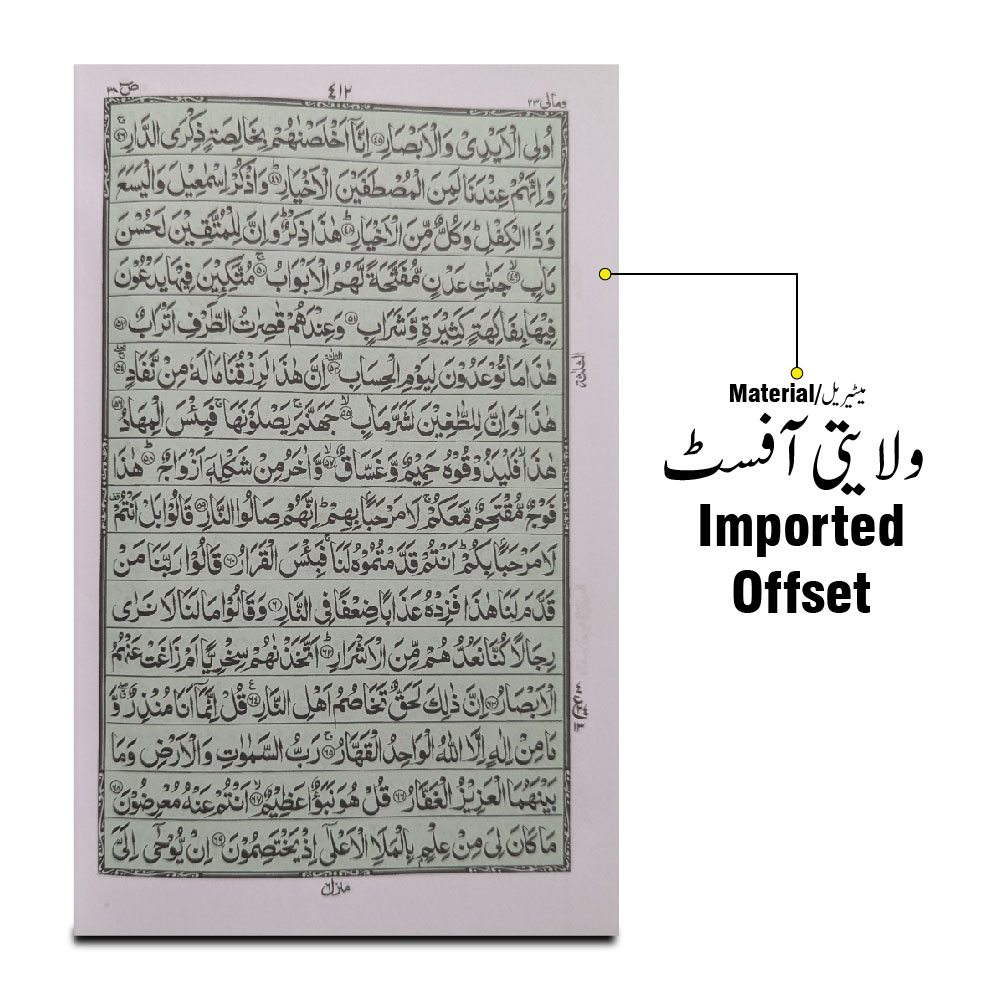 ص ۳۸
۴۱۲
ومالی ۲۳
اُولِی الۡاَیۡدِیۡ وَالۡاَبۡصَارِ ﴿۴۵﴾ اِنَّاۤ اَخۡلَصۡنٰهُمۡ بِخَالِصَةٍ ذِكۡرَی الدَّارِ ﴿۴۶﴾
وَاِنَّهُمۡ عِنۡدَنَا لَمِنَ الۡمُصۡطَفَیۡنَ الۡاَخۡیَارِ ﴿۴۷﴾ وَاذۡكُرۡ اِسۡمٰعِیۡلَ وَالۡیَسَعَ
وَذَا الۡكِفۡلِ وَكُلٌّ مِّنَ الۡاَخۡیَارِ ﴿۴۸﴾ هٰذَا ذِكۡرٌ وَاِنَّ لِلۡمُتَّقِیۡنَ لَحُسۡنَ
مَاٰبٍ ﴿۴۹﴾ جَنّٰتِ عَدۡنٍ مُّفَتَّحَةً لَّهُمُ الۡاَبۡوَابُ ﴿۵۰﴾ مُتَّكِـِٕیۡنَ فِیۡهَا یَدۡعُوۡنَ
فِیۡهَا بِفَاكِهَةٍ كَثِیۡرَةٍ وَّشَرَابٍ ﴿۵۱﴾ وَعِنۡدَهُمۡ قٰصِرٰتُ الطَّرۡفِ اَتۡرَابٌ ﴿۵۲﴾
هٰذَا مَا تُوۡعَدُوۡنَ لِیَوۡمِ الۡحِسَابِ ﴿۵۳﴾ اِنَّ هٰذَا لَرِزۡقُنَا مَا لَهٗ مِنۡ نَّفَادٍ ﴿۵۴﴾
هٰذَا وَاِنَّ لِلطّٰغِیۡنَ لَشَرَّ مَاٰبٍ ﴿۵۵﴾ جَهَنَّمَ یَصۡلَوۡنَهَا فَبِئۡسَ الۡمِهَادُ ﴿۵۶﴾
هٰذَا فَلۡیَذُوۡقُوۡهُ حَمِیۡمٌ وَّغَسَّاقٌ ﴿۵۷﴾ وَّاٰخَرُ مِنۡ شَكۡلِهٖۤ اَزۡوَاجٌ ﴿۵۸﴾ هٰذَا
فَوۡجٌ مُّقۡتَحِمٌ مَّعَكُمۡ لَا مَرۡحَبًۢا بِهِمۡ اِنَّهُمۡ صَالُوا النَّارِ ﴿۵۹﴾ قَالُوۡا بَلۡ اَنۡتُمۡ
لَا مَرۡحَبًۢا بِكُمۡ اَنۡتُمۡ قَدَّمۡتُمُوۡهُ لَنَا فَبِئۡسَ الۡقَرَارُ ﴿۶۰﴾ قَالُوۡا رَبَّنَا مَنۡ
قَدَّمَ لَنَا هٰذَا فَزِدۡهُ عَذَابًا ضِعۡفًا فِی النَّارِ ﴿۶۱﴾ وَقَالُوۡا مَا لَنَا لَا نَرٰی
رِجَالًا كُنَّا نَعُدُّهُمۡ مِّنَ الۡاَشۡرَارِ ﴿۶۲﴾ اَتَّخَذۡنٰهُمۡ سِخۡرِیًّا اَمۡ زَاغَتۡ عَنۡهُمُ
الۡاَبۡصَارُ ﴿۶۳﴾ اِنَّ ذٰلِكَ لَحَقٌّ تَخَاصُمُ اَهۡلِ النَّارِ ﴿۶۴﴾ قُلۡ اِنَّمَاۤ اَنَا مُنۡذِرٌ وَّ
مَا مِنۡ اِلٰهٍ اِلَّا اللّٰهُ الۡوَاحِدُ الۡقَهَّارُ ﴿۶۵﴾ رَبُّ السَّمٰوٰتِ وَالۡاَرۡضِ وَمَا
بَیۡنَهُمَا الۡعَزِیۡزُ الۡغَفَّارُ ﴿۶۶﴾ قُلۡ هُوَ نَبَؤٌا عَظِیۡمٌ ﴿۶۷﴾ اَنۡتُمۡ عَنۡهُ مُعۡرِضُوۡنَ ﴿۶۸﴾
مَا كَانَ لِیَ مِنۡ عِلۡمٍۭ بِالۡمَلَاِ الۡاَعۡلٰۤی اِذۡ یَخۡتَصِمُوۡنَ ﴿۶۹﴾ اِنۡ یُّوۡحٰۤی اِلَیَّ
منزل ۶
Material/میٹیریل
ولایتی آفسٹ
Imported
Offset